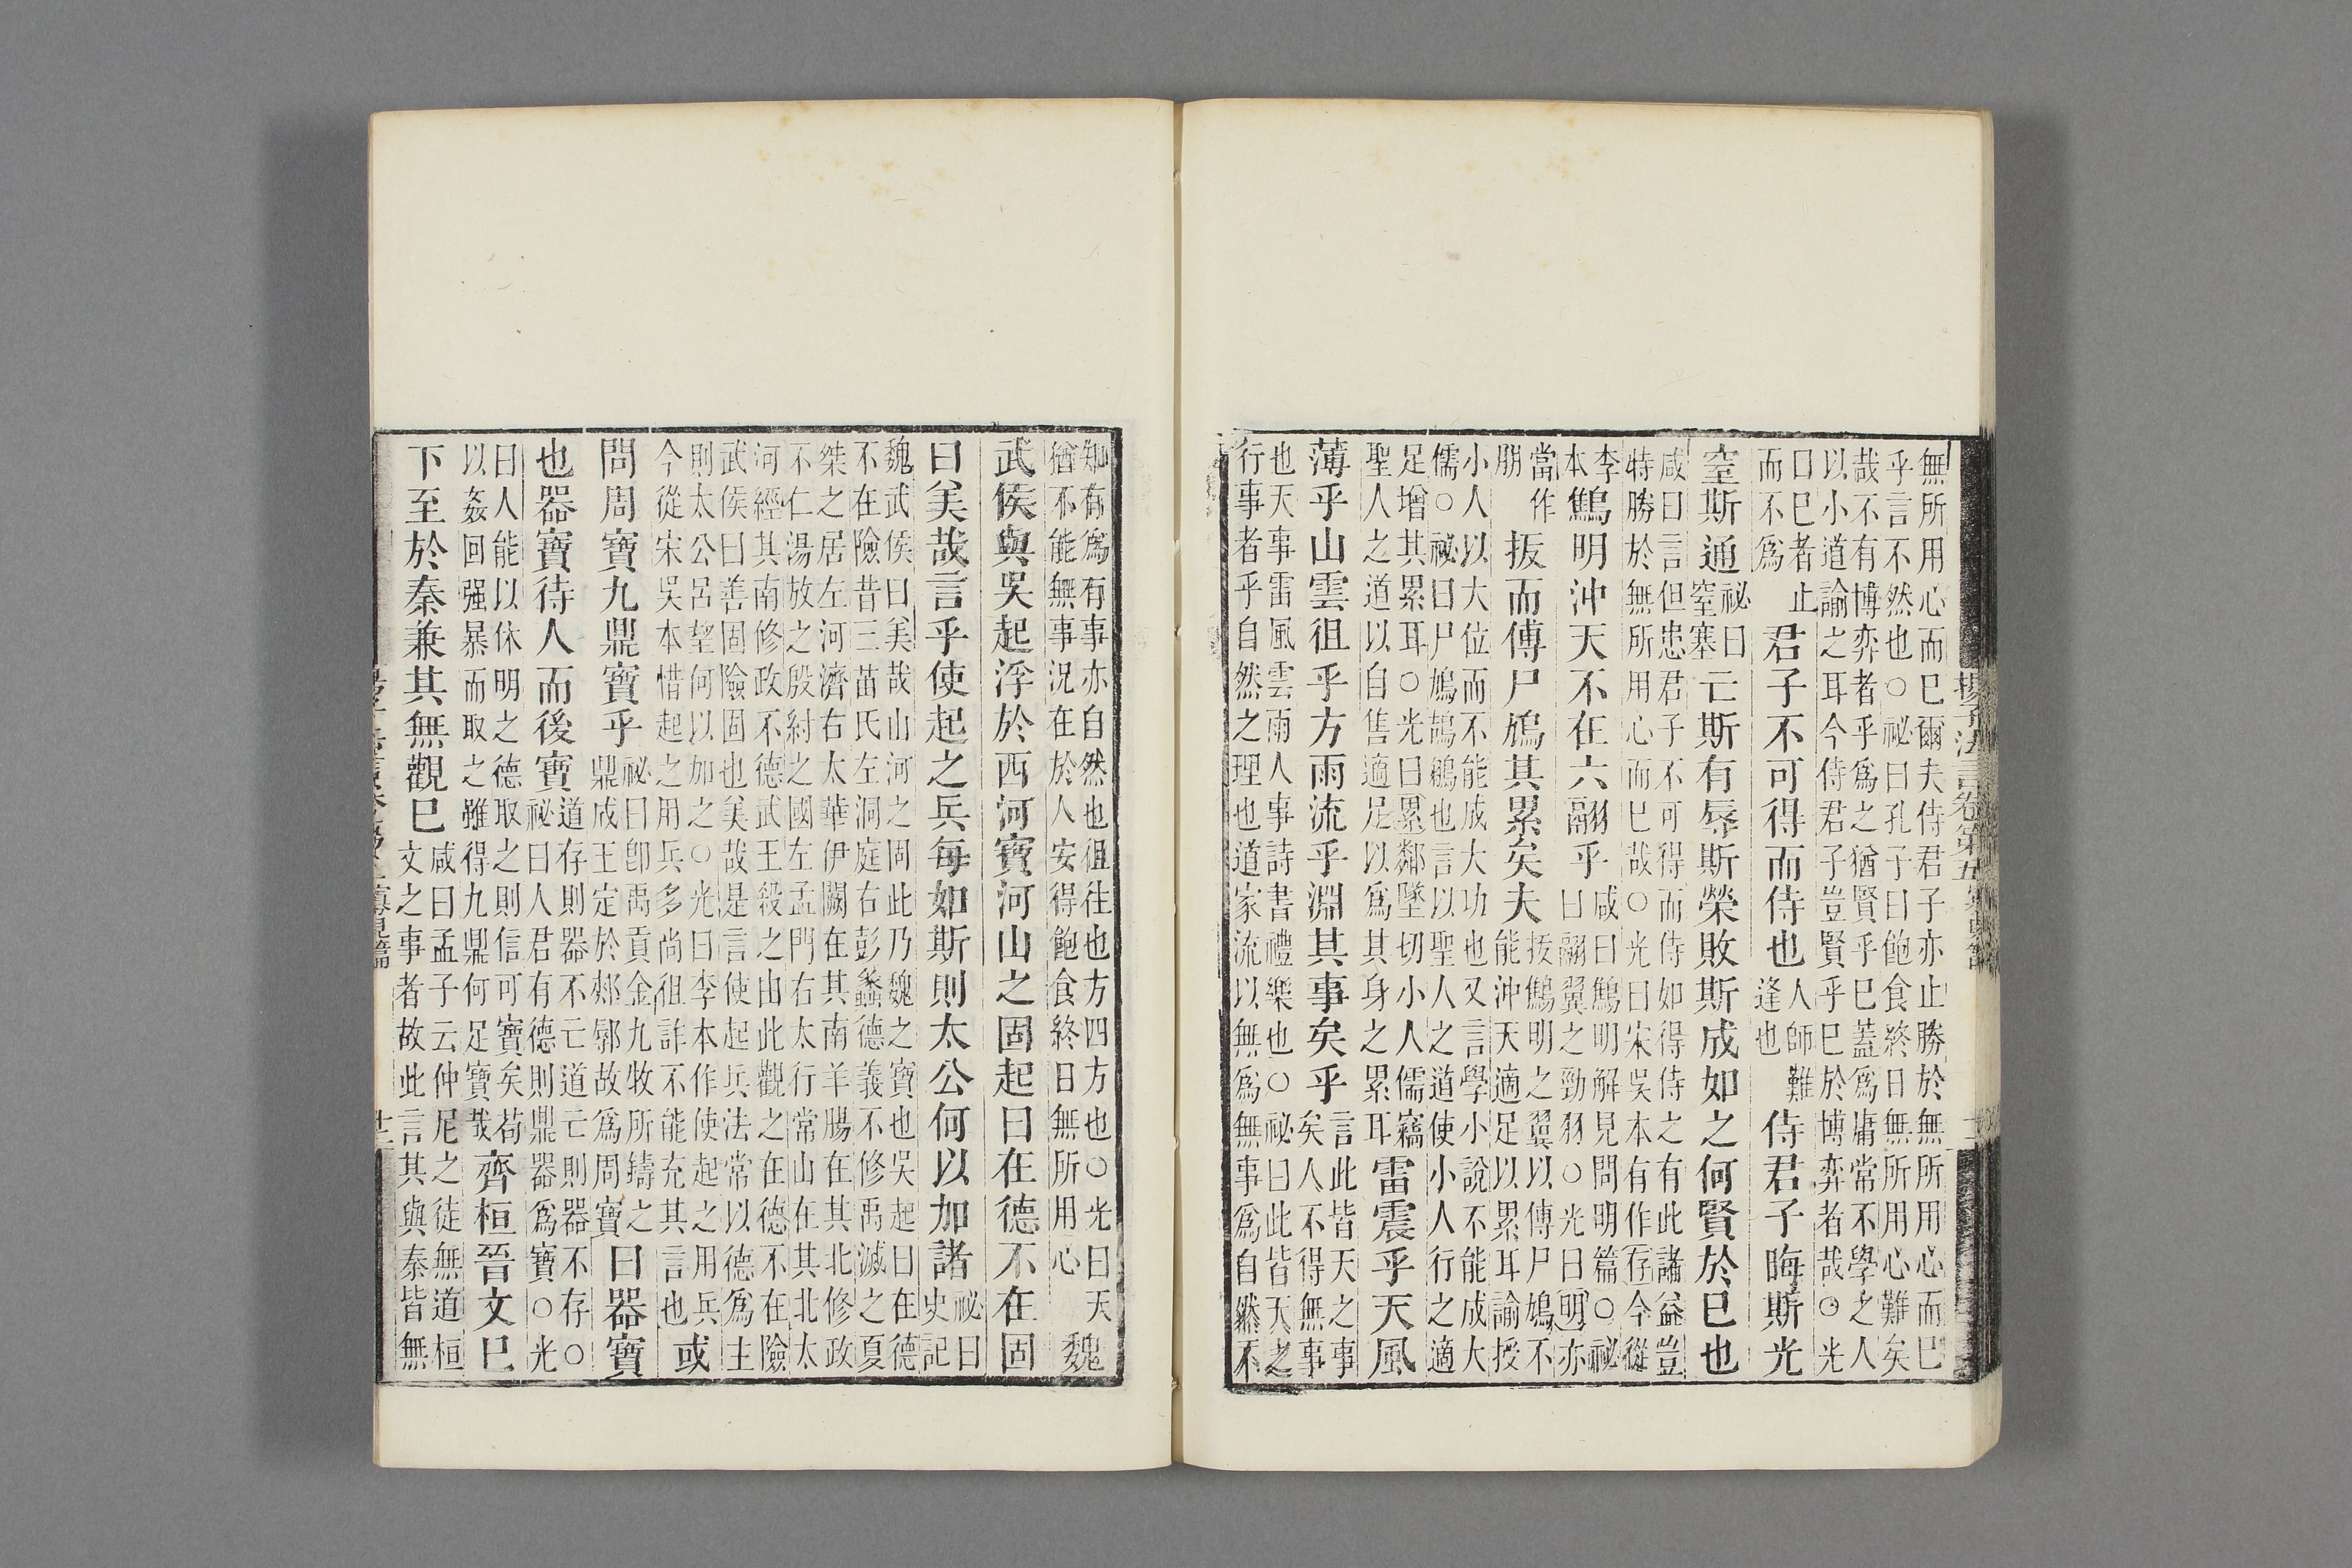 揚子法言卷第五寡見篇
無所用心而巳爾夫侍君子亦止勝於無所用心而巳
乎言不然也○祕曰孔子曰飽食終日無所用心難矣
哉不有博弈者乎爲之猶賢乎巳蓋爲庸常不學之人
以小道諭之耳今侍君子豈賢乎巳於博弈者哉○光
曰巳者止而不爲君子不可得而侍也人師難逢也侍君子晦斯光
窒斯通祕曰窒塞亡斯有辱斯榮敗斯成如之何賢於巳也
咸曰言但患君子不可得而侍如得侍之有此諸益豈
特勝於無所用心而巳哉○光曰宋吳本有作存今從
李本鷦明沖天不在六翮乎咸曰鷦明解見問明篇○祕曰翮翼之勁羽○光曰明亦
當作朋拔而傅尸鳩其累矣夫拔鷦明之翼以傅尸鳩不能沖天適足以累耳諭授
小人以大位而不能成大功也又言學小說不能成大
儒○祕曰尸鳩鴶鵴也言以聖人之道使小人行之適
足增其累耳○光曰累鄰墜切小人儒竊聖人之道以自售適足以爲其身之累耳雷震乎天風
薄乎山雲徂乎方雨流乎淵其事矣乎言此皆天之事矣人不得無事
也天事雷風雲雨人事詩書禮樂也○祕曰此皆天之
行事者乎自然之理也道家流以無爲無事爲自然不
知有爲有事亦自然也徂往也方四方也○光曰天猶不能無事況在於人安得飽食終日無所用心魏
武侯與吳起浮於西河寶河山之固起曰在德不在固
曰美哉言乎使起之兵每如斯則太公何以加諸祕曰史記
魏武侯曰美哉山河之固此乃魏之寶也吳起曰在德
不在險昔三苗氏左洞庭右彭蠡德義不修禹滅之夏
桀之居左河濟右太華伊闕在其南羊腸在其北修政
不仁湯放之殷紂之國左孟門右太行常山在其北太
河經其南修政不德武王殺之由此觀之在德不在險
武侯曰善固險固也美哉是言使起兵法常以德爲主
則太公呂望何以加之○光曰李本作使起之用兵今從宋吳本惜起之用兵多尚徂詐不能充其言也或
問周寶九鼎寶乎祕曰卽禹貢金九牧所鑄之鼎成王定於郟鄏故爲周寶曰器寶
也器寶待人而後寶道存則器不亡道亡則器不存○祕曰人君有德則鼎器爲寶○光
曰人能以休明之德取之則信可寶矣苟以姦回强暴而取之雖得九鼎何足寶哉齊桓晉文巳
下至於秦兼其無觀巳咸曰孟子云仲尼之徒無道桓文之事者故此言其與秦皆無